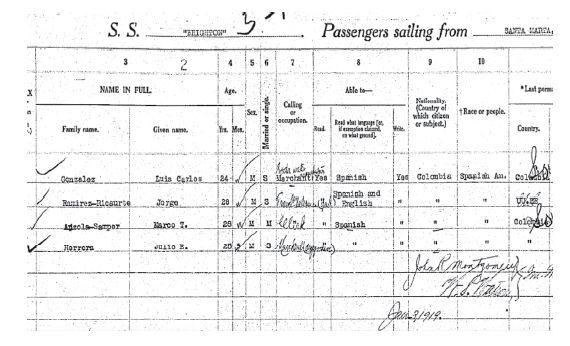 S. S. "BRIGHTON" Passengers sailing from SANTA MARTA,
3 4 5 6 7 8 9 10
2
NAME IN FULL. Age. Sex. Married or single. Calling or occupation. Able to— Nationality. (Country of which citizen or subject.) †Race or people. *Last perma
Family name. Given name. Yrs. Mos. Read. Read what language [or, if exemption claimed, on what ground]. Write. Country.
Gonzalez Luis Carlos 24 M S Merchant Yes Spanish Yes Colombia Spanish Am. Colombia
Ramirez-Ricaurte Jorge 28 M S " Spanish and English " " "
Samper Marco T. 28 M M Clerk " Spanish " " " Colombia
Herrera Julio E. M S " " " " "
John R Montgomery
Jan 3 1919.